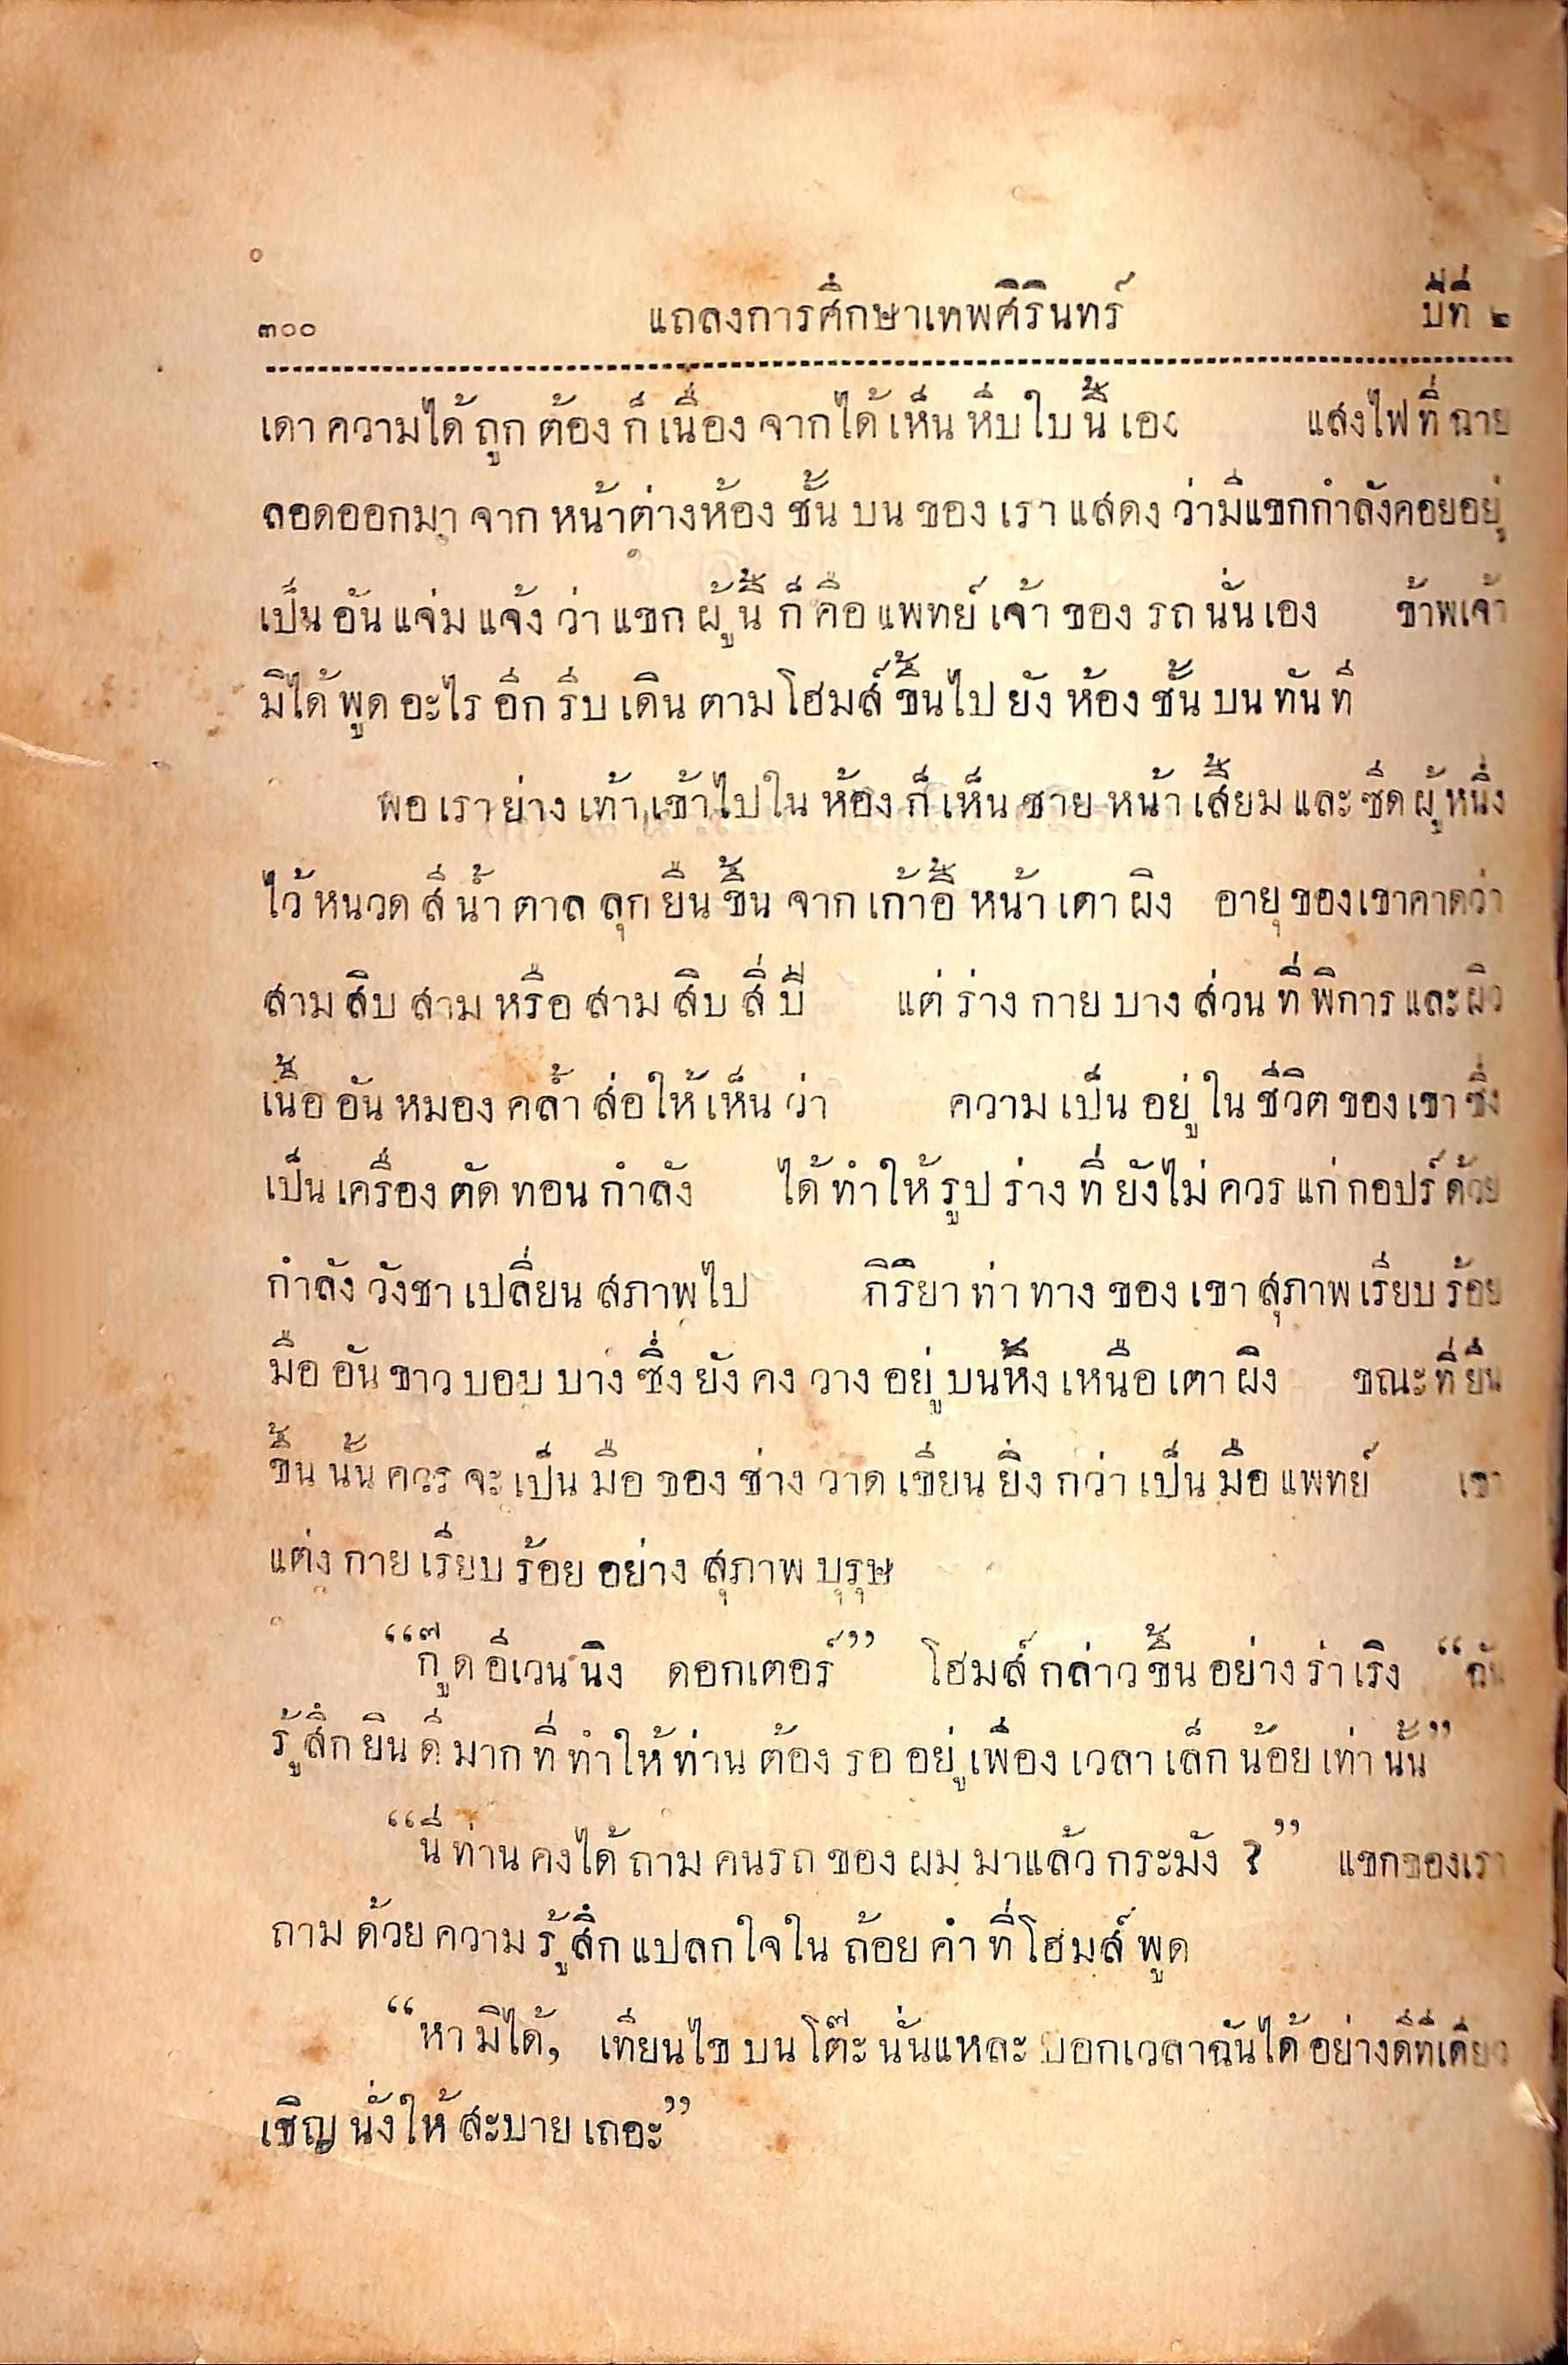 ๓๐๐ แถลงการศึกษาเทพศิรินทร์ ปีที่ ๒
เดาความได้ถูกต้องก็เนื่องจากได้เห็นหีบใบนี้เอง แสงไฟที่ฉาย
ลอดออกมาจากหน้าต่างห้องชั้นบนของเราแสดงว่ามีแขกกำลังคอยอยู่
เป็นอันแจ่มแจ้งว่าแขกผู้นี้ก็คือแพทย์เจ้าของรถนั่นเอง ข้าพเจ้า
มิได้พูดอะไรอีกรีบเดินตามโฮมส์ขึ้นไปยังห้องชั้นบนทันที
พอเราย่างเท้าเข้าไปในห้องก็เห็นชายหน้าเสี้ยมและซีดผู้หนึ่ง
ไว้หนวดสีน้ำตาลลุกยืนขึ้นจากเก้าอี้หน้าเตาผิง อายุของเขาคาดว่า
สามสิบสามหรือสามสิบสี่ปี แต่ร่างกายบางส่วนที่พิการและผิว
เนื้ออันหมองคล้ำส่อให้เห็นว่า ความเป็นอยู่ในชีวิตของเขาซึ่ง
เป็นเครื่องตัดทอนกำลัง ได้ทำให้รูปร่างที่ยังไม่ควรแก่กอปร์ด้วย
กำลังวังชาเปลี่ยนสภาพไป กิริยาท่าทางของเขาสุภาพเรียบร้อย
มืออันขาวบอบบางซึ่งยังคงวางอยู่บนหึ้งเหนือเตาผิง ขณะที่ยืน
ขึ้นนั้นควรจะเป็นมือของช่างวาดเขียนยิ่งกว่าเป็นมือแพทย์ เขา
แต่งกายเรียบร้อยอย่างสุภาพบุรุษ
“กู๊ดอีเวนนิง ดอกเตอร์” โฮมส์กล่าวขึ้นอย่างร่าเริง “ฉัน
รู้สึกยินดีมากที่ทำให้ท่านต้องรออยู่เพียงเวลาเล็กน้อยเท่านั้น”
“นี่ท่านคงได้ถามคนรถของผมมาแล้วกระมัง ?” แขกของเรา
ถามด้วยความรู้สึกแปลกใจในถ้อยคำที่โฮมส์พูด
“หามิได้, เทียนไขบนโต๊ะนั่นแหละบอกเวลาฉันได้อย่างดีทีเดียว
เชิญนั่งให้สะบายเถอะ”